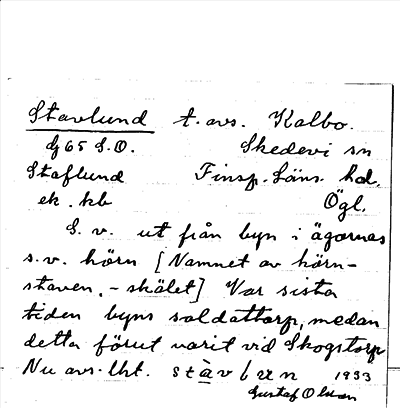 Stavlund t. avs. Kalbo.
Gj 65 S.O. Skedevi sn
Staflund Finsp. Läns hd.
ek. kb Ögl.
S. v. ut från byn i ägornas
s.v. hörn [Namnet av hörn-
staven, - skälet] Var sista
tiden byns soldattorp, medan
detta förut varit vid Skogstorp
Nu avs. lht. 1933
Gustaf Olsson